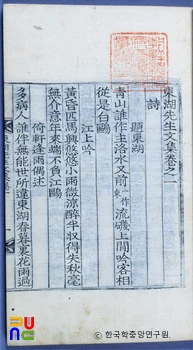 東湖先生文集卷之一
詩
題東湖
青山誰作主洛水又前流磯上間吟客相
從是白鷗
江上吟
黃昏匹馬興悠悠小雨微涼醉半収得失秋毫
無介意年來端不負江鷗
倚軒逢雨偶述
多病人誰伴無能世所違東湖春暮更花雨過
ⓒ 한국학중앙연구원